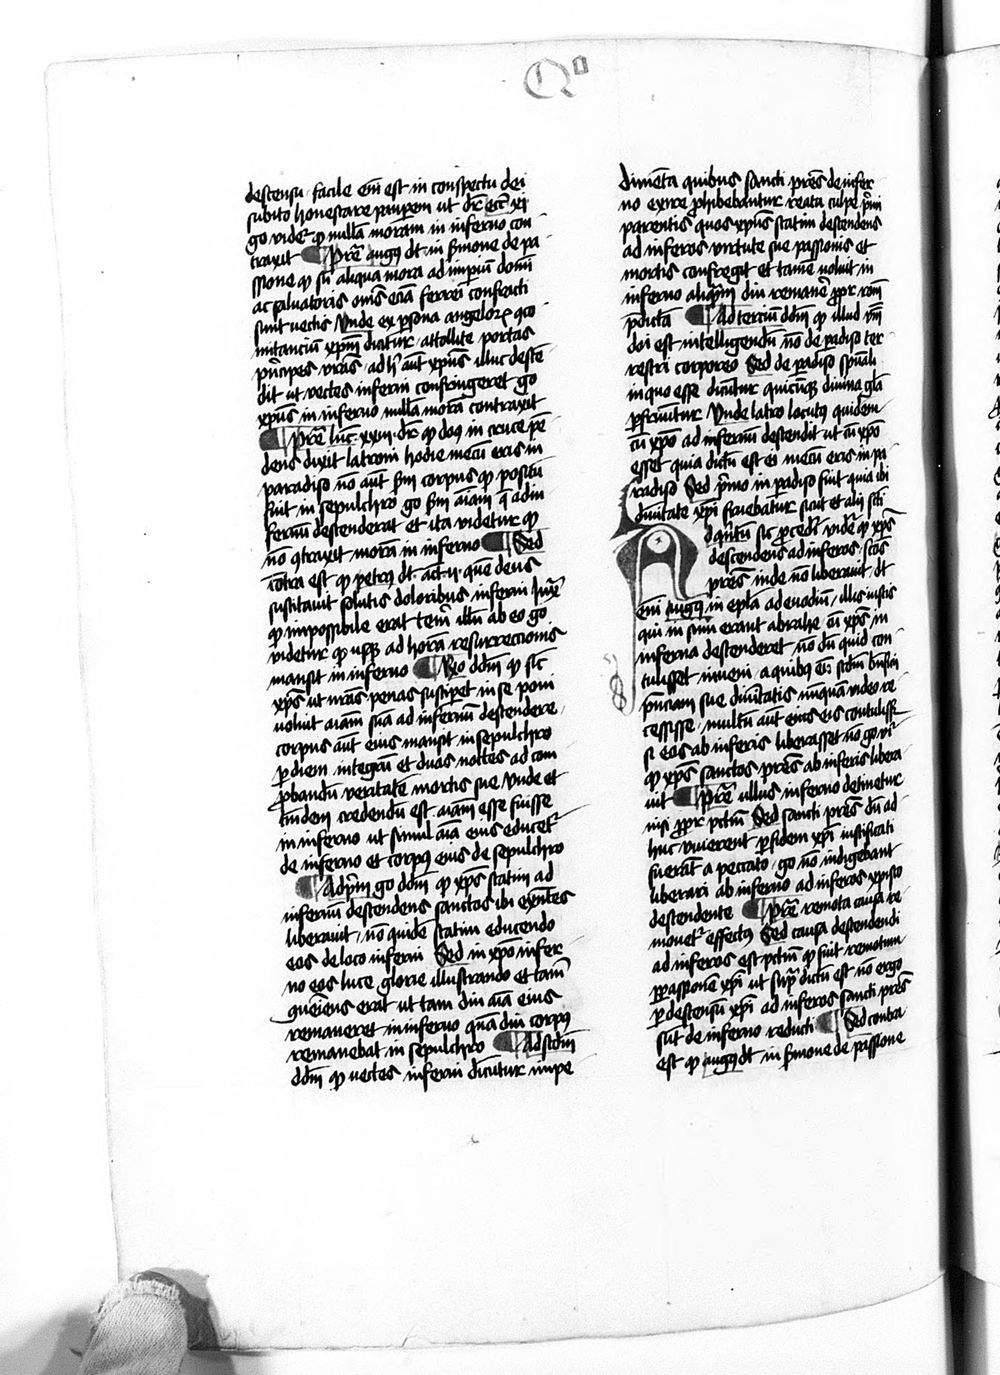 Qo
descensu facile em̄ est in conspectu dei
subito honestare paupem ut dr̄ ecc̄ xi
go videt̄ ꝙ nullā moram in inferno con
traxit ¶ Pret̄ augꝯ dt̄ in s̄mone de pa
ssione ꝙ sn̄ aliqua mora ad impiū domī
ac saluatoris om̄s etiā ferrei confracti
sunt uectis Unde ex ꝑsona angeloꝝ ꝯco
mitanciū xp̄m dicitur attollite portas
pn̄cipes vrās ad h̄ aūt xp̄us illuc descē
dit ut vectes inferni confringeret go
xp̄us in inferno nullā morā contraxit
¶ Pret̄ luc̄ xxiii dr̄ ꝙ dn̄s in cruce pē
dens dixit latroni hodie mecū eris in
paradiso nō aūt s̄m corpus ꝙ positū
fuit in sepulchro go s̄m aīam q̄ ad in
fernū descenderat et ita videtur ꝙ
nō ꝯtraxit morā in inferno ¶ Sed
cōtra est ꝙ petrꝯ dt̄ act̄ ii quē deus
suscitauit solutis doloribus inferni iux̄
ꝙ impossibile erat tenr̄i illū ab eo go
videtur ꝙ usqꝫ ad horā resurrectionis
mansit in inferno ¶ Rn̄o ddm̄ ꝙ sic̄
xp̄s ut nrās penas susciperet in se poni
uoluit aīam suā ad infernū descendere
corpus aūt eius mansit in sepulchro
ꝑ diem integrū et duas noctes ad com
ꝓbandū veritatē mortis sue Unde et
tm̄dem credendū est aīam eius fuisse
in inferno ut simul aīa eius educeret̄
de inferno et corpꝯ eius de sepulchro
¶ Ad pm̄ go ddm̄ ꝙ xp̄s statim ad
infernū descendens sanctos ibi exn̄tes
liberauit nō quidē statim educendo
eos de loco inferni Sed in ipso infer
no eos luce glorie illustrando et tam̄
ꝯueniens erat ut tam diu aīa eius
remaneret in inferno quādiu corpꝯ
remanebat in sepulchro ¶ Ad scdm̄
ddm̄ ꝙ uectes inferni dicūtur impe
dimēta quibus sancti prēs de infer
no exire ꝓhibebantur reatu culpe pm̄i
parentis quos xp̄us statim descendens
ad inferos virtute sue passionis et
mortis confregit et tamē uoluit in
inferno aliqm̄ diu remanē ꝓpr̄ rōm
pdictā ¶ Ad terciū ddm̄ ꝙ illud vm̄
dn̄i est intelligendū nō de padiso ter
restri corporeo Sed de padiso spuāli
in quo esse dicūtur quicūqꝫ diuina glā
ꝑfruuntur Unde latro locutꝯ quidem
cū xp̄o ad infernū descendit ut cū xp̄o
esset quia dictū est ei mecū eris in pa
radiso Sed pm̄io in padiso fuit quia ibi
diuitate xp̄i fruebatur sicut et alij scī
Ad qn̄tū sic ꝓcedit̄ videt̄ ꝙ xp̄s
descendens ad inferos scōs
prēs inde nō liberauit dt̄
em̄ augꝯ in epl̄a ad euodiū illis iustis
qui in sinu erant abrahe cū xp̄s in
inferna descenderet nō dū quid con
tulisset inueni a quibus eū scdm̄ beatificā
pn̄ciam sue diuitatis nūquam video re
cessisse multū aūt eius eis contulisset
si eos ab inferis liberasset nō go vr̄
ꝙ xp̄s sanctos prēs ab inferis libera
uit ¶ Pret̄ nllus inferno detinetur
nisi ꝓpr̄ pctm̄ Sed sancti prēs dū ad
huc viuerent ꝑ fidem xp̄i iustificati
fuerāt a peccato go nō indigebant
liberari ab inferno ad inferos xpisto
descendente ¶ Pret̄ remota causa re
mouet̄ effectꝯ Sed causa descendendi
ad inferos est pctm̄ ꝙ fuit remotum
ꝑ passionē xp̄i ut sup̄ dictū est nō ergo
ꝑ descensū xp̄i ad inferos sancti prēs
sūt de inferno reducti ¶ Sed contra
est ꝙ augꝯ dt̄ in s̄mone de passione